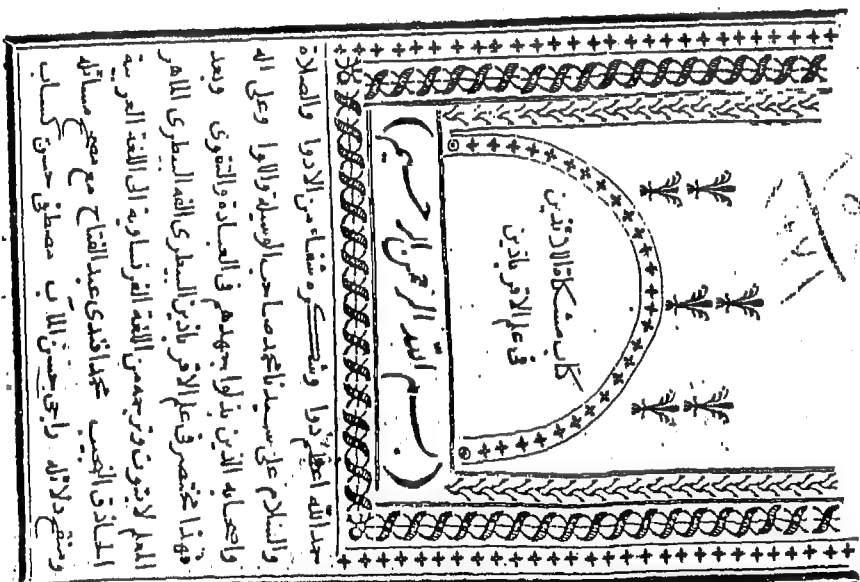 كتاب مشكاة اللائذين
في علم الاقرباذين
(بسم الله الرحمن الرحيم)
حمد الله اعظم دوا وشكره شفاء من الادوا والصلاة
والسلام على سيدنا محمد صاحب الوسيلة واللوا وعلى اله
واصحابه الذين بذلوا جهدهم في العبادة والتقوى وبعد
فهذا مختصر في علم الاقرباذين البيطرى الفه البيطرى الماهر
المعلم لابتوت وترجمه من اللغة الفرنساوية الى اللغة العربية
الحاذق النجيب محمد افندى عبد الفتاح مع مصحح مسائله
ومنقح دلائله راجى حسن المآب مصطفى حسن كساب